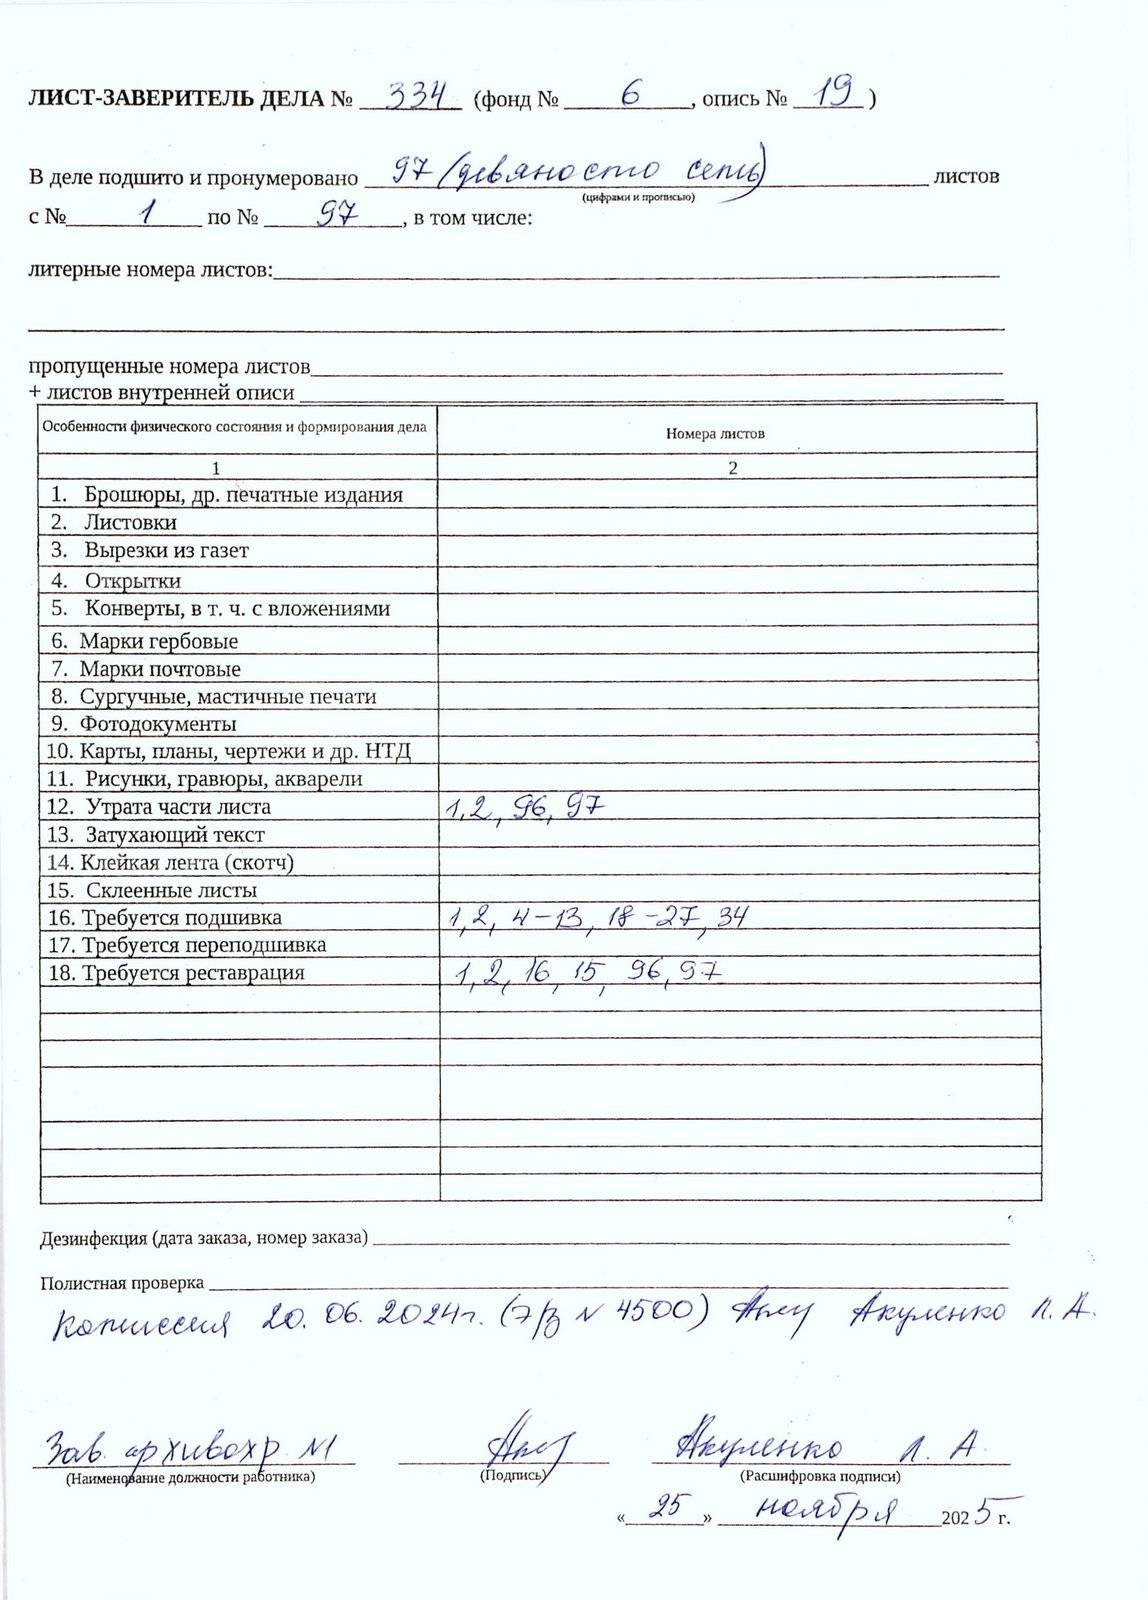 ЛИСТ-ЗАВЕРИТЕЛЬ ДЕЛА № 334 (фонд № 6, опись № 19)
В деле подшито и пронумеровано 97 (девяносто семь) листов
(цифрами и прописью)
с № 1 по № 97, в том числе:
литерные номера листов:
пропущенные номера листов
+ листов внутренней описи
Особенности физического состояния и формирования дела Номера листов
1 2
1. Брошюры, др. печатные издания
2. Листовки
3. Вырезки из газет
4. Открытки
5. Конверты, в т. ч. с вложениями
6. Марки гербовые
7. Марки почтовые
8. Сургучные, мастичные печати
9. Фотодокументы
10. Карты, планы, чертежи и др. НТД
11. Рисунки, гравюры, акварели
12. Утрата части листа 1, 2, 96, 97
13. Затухающий текст
14. Клейкая лента (скотч)
15. Склеенные листы
16. Требуется подшивка 1, 2, 4-13, 18-27, 34
17. Требуется переподшивка
18. Требуется реставрация 1, 2, 16, 15, 96, 97
Дезинфекция (дата заказа, номер заказа)
Полистная проверка
Комиссия 20.06.2024г. (№ 4500) Акуленко Л. А.
Зав. архивохр №1 Акуленко Л. А.
(Наименование должности работника) (Подпись) (Расшифровка подписи)
«25» ноября 2025 г.